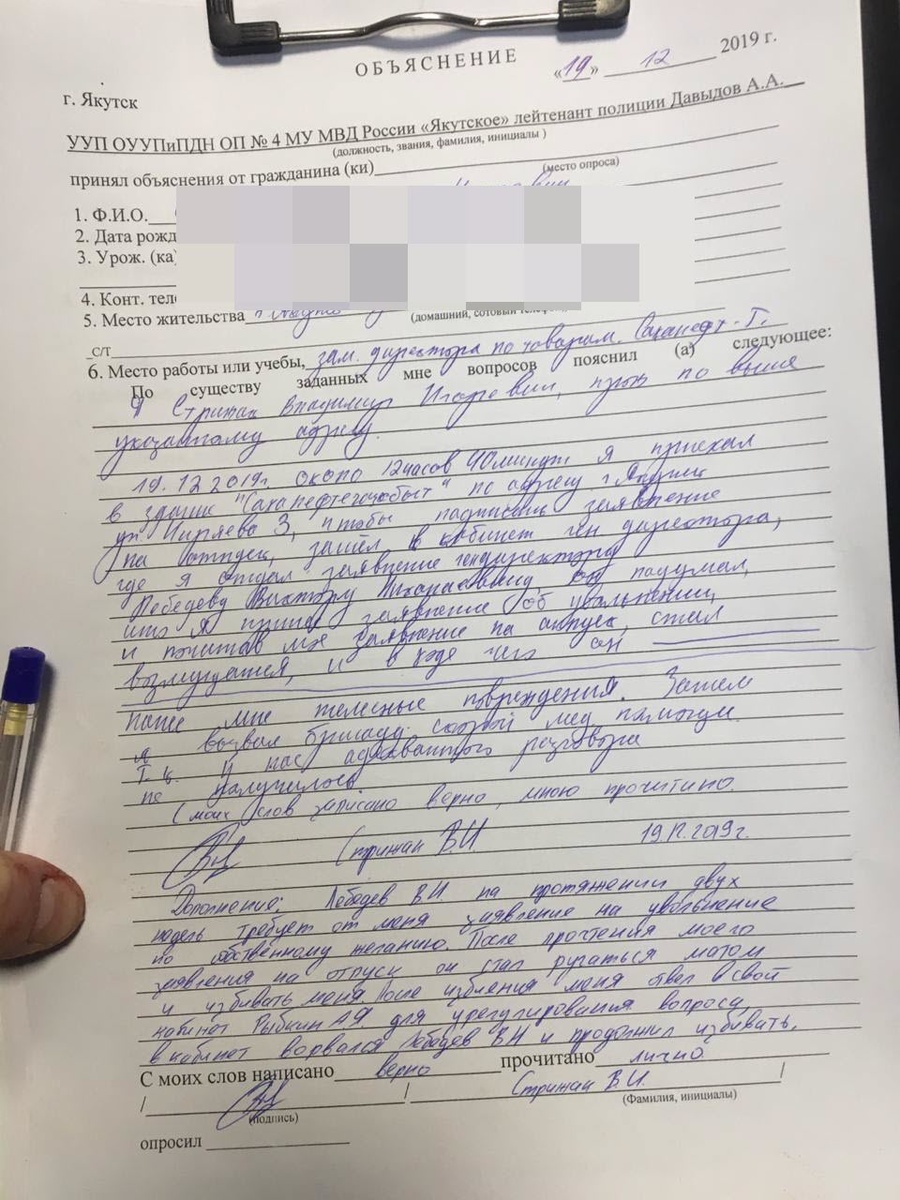 ОБЪЯСНЕНИЕ
«19» 12 2019 г.
г. Якутск
УУП ОУУПиПДН ОП № 4 МУ МВД России «Якутское» лейтенант полиции Давыдов А.А.
(должность, звания, фамилия, инициалы )
принял объяснения от гражданина (ки)
(место опроса)
1. Ф.И.О.
2. Дата рожд
3. Урож. (ка)
4. Конт. тел
5. Место жительства
(домашний, сотовый
с/т
6. Место работы или учебы, зам. директора по товарам. Саханефт-Т.
По существу заданных мне вопросов пояснил (а) следующее:
Я Стрижак Владимир Игоревич, прож по выше
указанному адресу.
19.12.2019г. около 12часов 40минут я приехал
в здание "Саханефтегазсбыт" по адресу г.Якутск
ул Чиряева 3, чтобы подписать заявление
на отпуск, зашёл в кабинет ген директора,
где я отдал заявление гендиректору
Лебедеву Виктору он подумал,
что я принес заявление об увольнении,
и почитав моё заявление на отпуск, стал
возмущатся, и в ходе чего он
нанес мне телесные повреждения. Затем
я вызвал бригаду скорой мед помощи.
Т.к. у нас адекватного разговора
не получилось.
С моих слов записано верно, мною прочитано.
Стрижак В.И. 19.12.2019г.
Дополнение: Лебедев В.Н. на протяжении двух
недель требует от меня заявление на увольнение
по собственному желанию. После прочтения моего
заявления на отпуск он стал ругаться матом
и избивать меня. После избиения меня отвел в свой
кабинет Рыбкин А.Ф. для урегулирования вопроса,
в кабинет ворвался Лебедев В.Н и продолжил избивать.
С моих слов написано верно прочитано лично
/ / Стрижак В.И. /
(подпись) (Фамилия, инициалы)
опросил